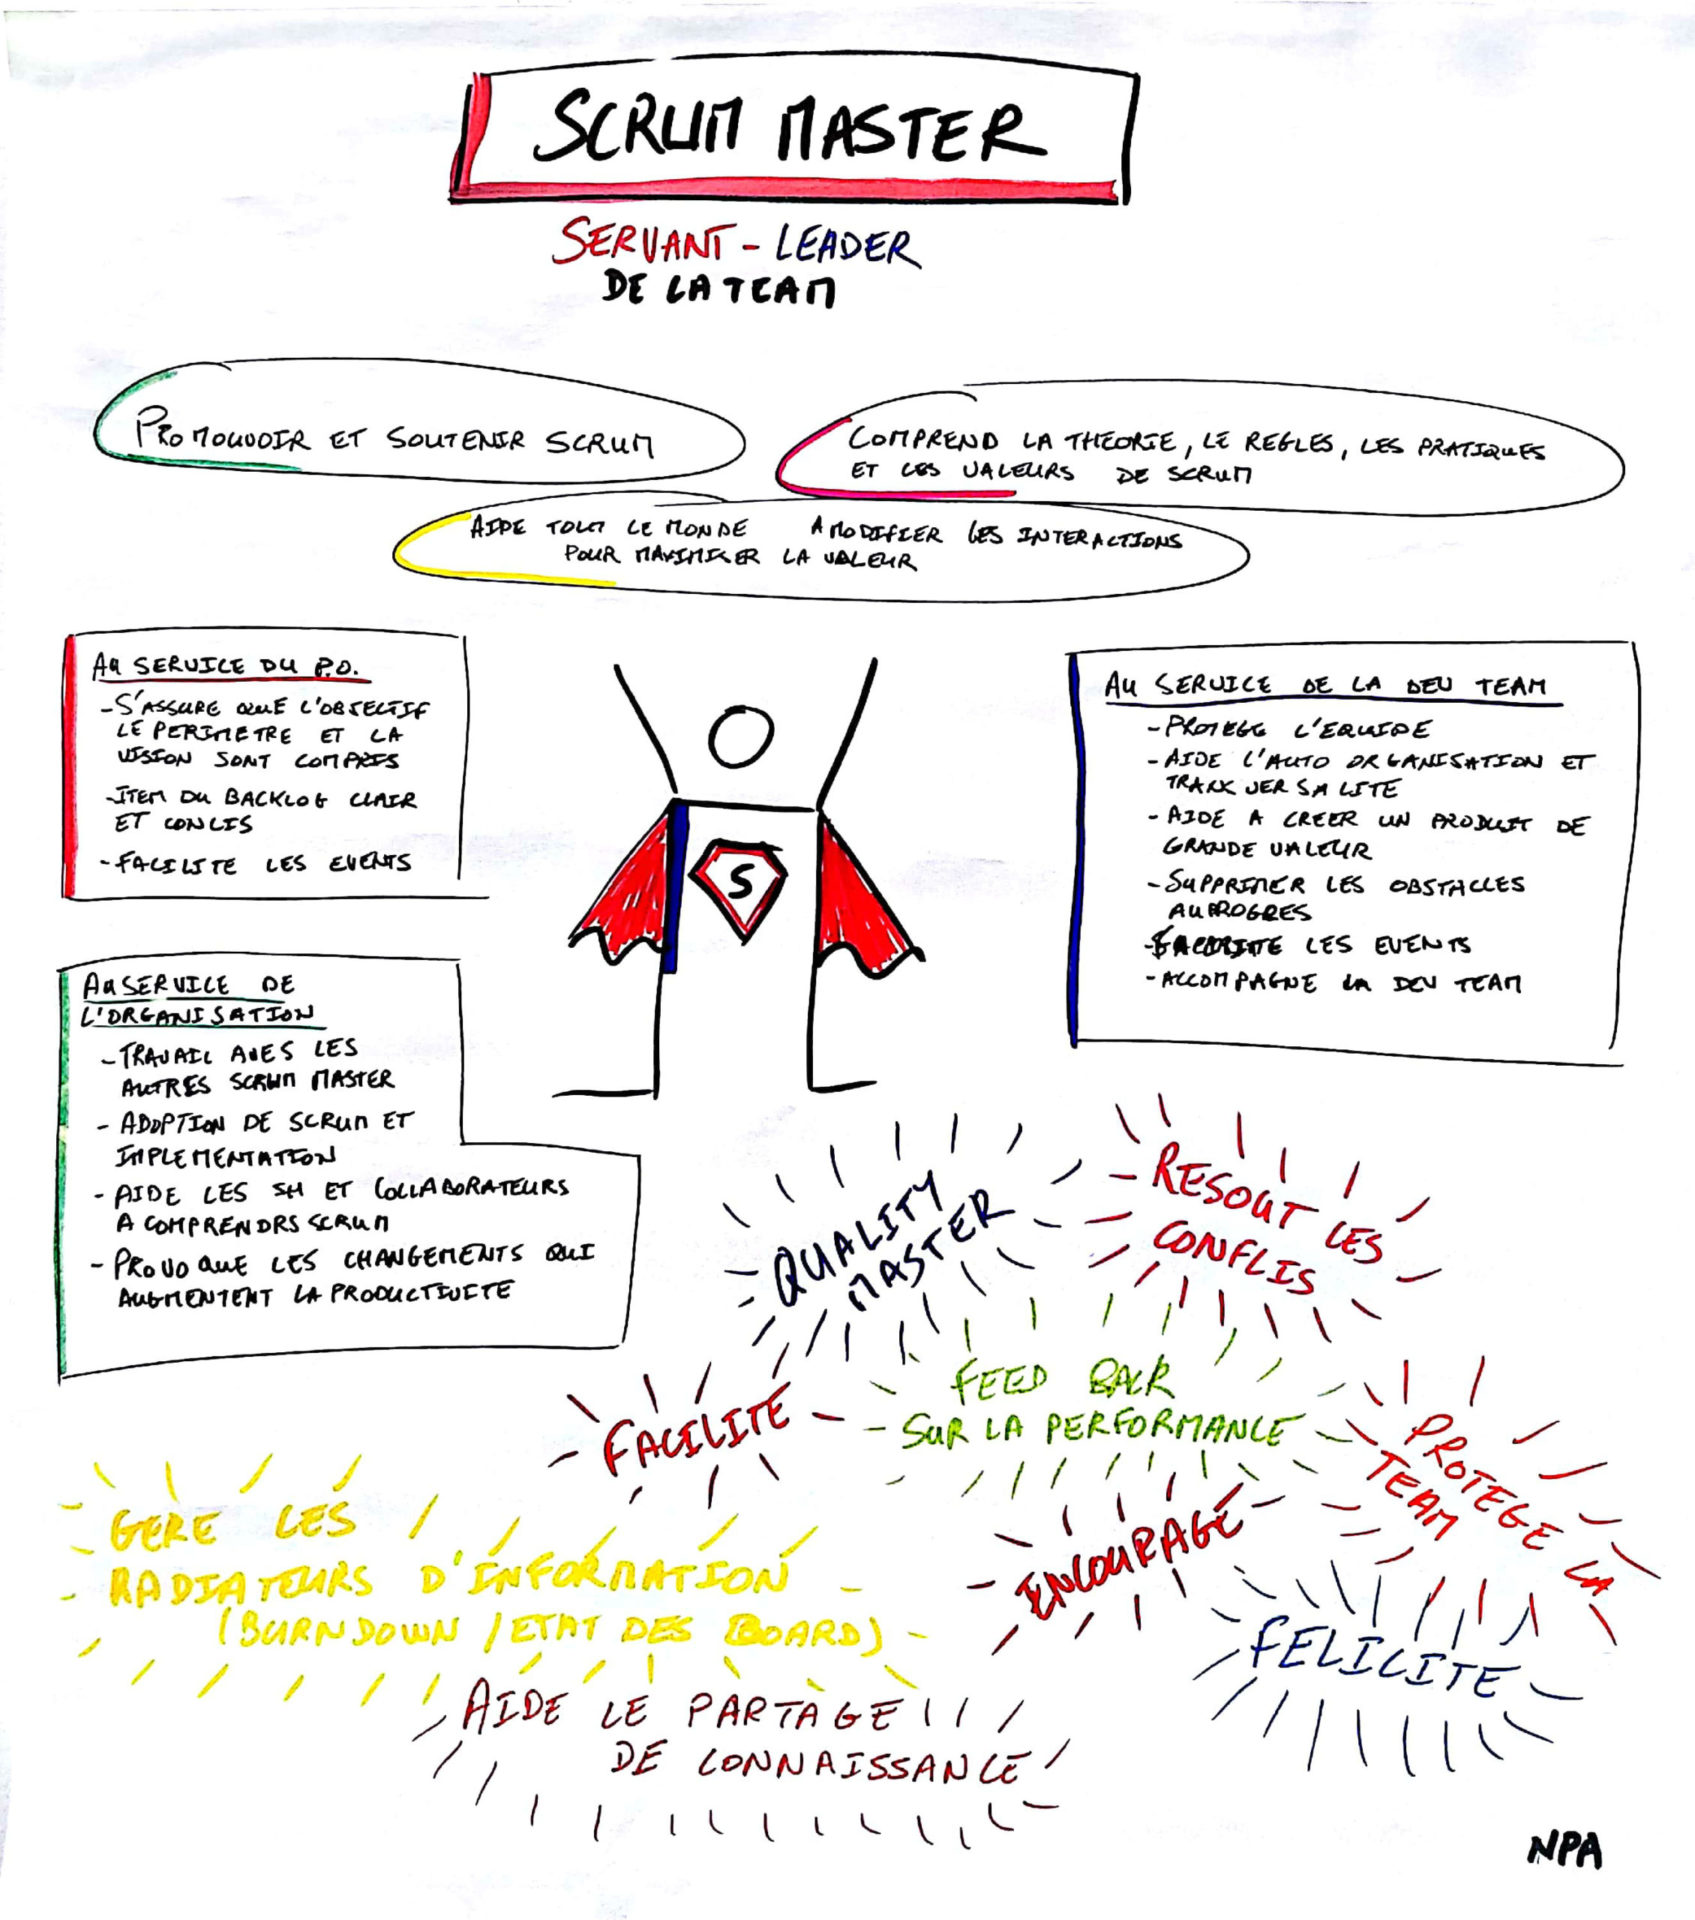 SCRUM MASTER
SERVANT-LEADER
DE LA TEAM
PROMOUVOIR ET SOUTENIR SCRUM
COMPREND LA THEORIE, LE REGLES, LES PRATIQUES
ET LES VALEURS DE SCRUM
AIDE TOUT LE MONDE A MODIFIER LES INTERACTIONS
POUR MAXIMISER LA VALEUR
AU SERVICE DU P.O.
- S'ASSURE QUE L'OBJECTIF
LE PERIMETRE ET LA
VISION SONT COMPRIS
- ITEM DU BACKLOG CLAIR
ET CONCIS
- FACILITE LES EVENTS
AU SERVICE DE LA DEV TEAM
- PROTEGE L'EQUIPE
- AIDE L'AUTO ORGANISATION ET
TRANSVERSALITE
- AIDE A CREER UN PRODUIT DE
GRANDE VALEUR
- SUPPRIMER LES OBSTACLES
AU PROGRES
- FACILITE LES EVENTS
- ACCOMPAGNE LA DEV TEAM
S
AU SERVICE DE
L'ORGANISATION
- TRAVAIL AVES LES
AUTRES SCRUM MASTER
- ADOPTION DE SCRUM ET
IMPLEMENTATION
- AIDE LES SH ET COLLABORATEURS
A COMPRENDRS SCRUM
- PROVOQUE LES CHANGEMENTS QUI
AUGMENTENT LA PRODUCTIVITE
QUALITY
MASTER
RESOUT LES
CONFLIS
FACILITE
FEED BACK
SUR LA PERFORMANCE
PROTEGE LA
TEAM
GERE LES
RADIATEURS D'INFORMATION
(BURNDOWN / ETAT DES BOARD)
ENCOURAGE
FELICITE
AIDE LE PARTAGE
DE CONNAISSANCE
NPA